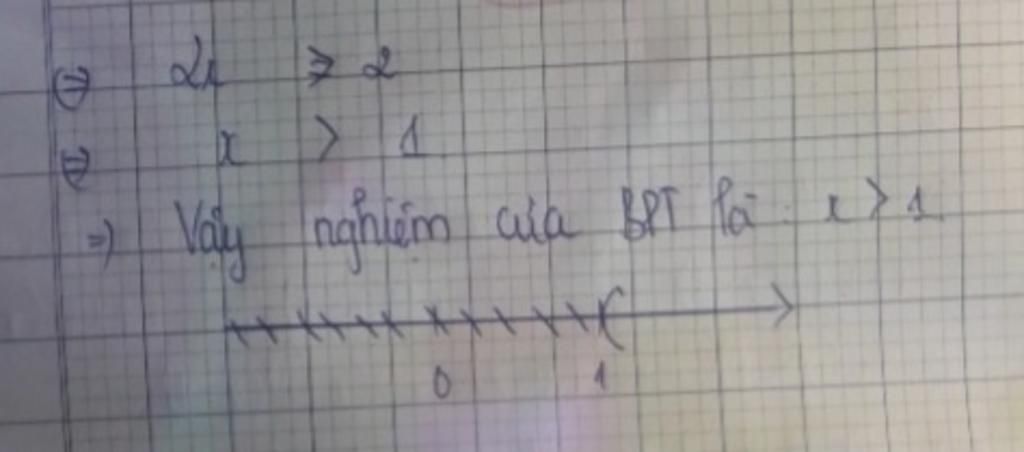 ⇔ 2x > 2
⇔ x > 1
=) Vậy nghiệm của BPT là : x > 1
0 1